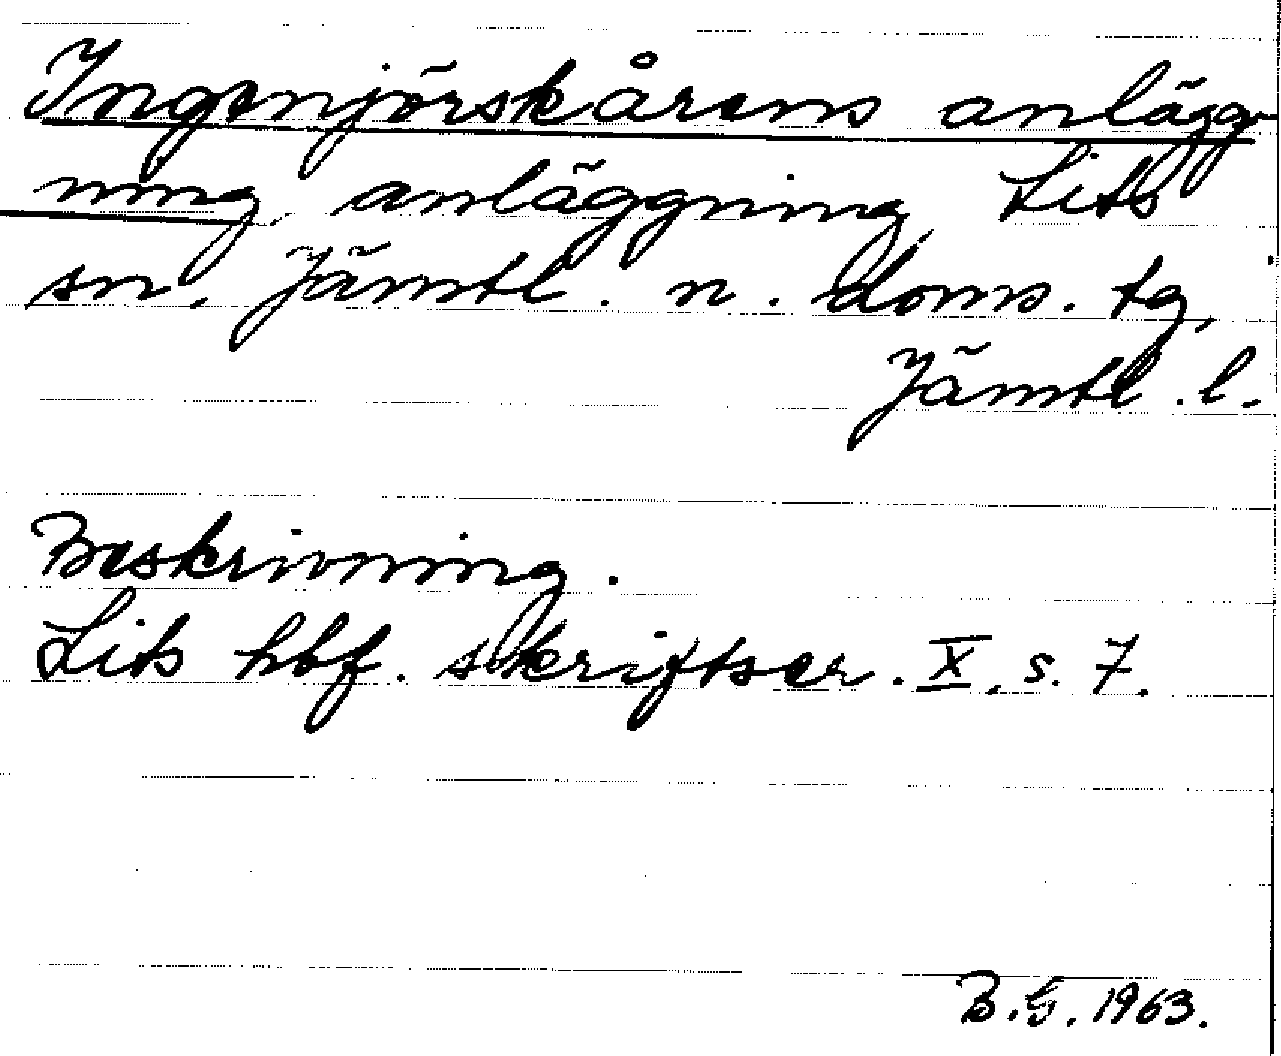 Ingenjörskårens anlägg-
ning anläggning Lits
sn. Jämtl. n. doms. tg,
Jämtl. l.
Beskrivning.
Lits hbf. skriftser. X, s. 7.
B.G. 1963.